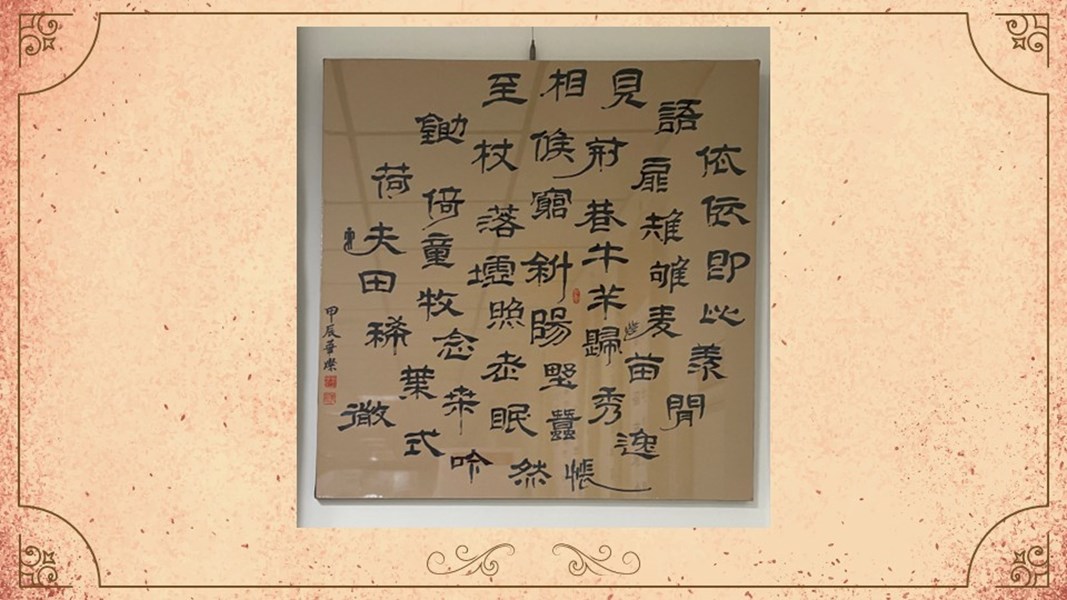 斜陽照墟落窮巷牛羊歸野老念牧童倚杖候荊扉雉雊麦苗秀蠶眠桑葉稀田夫荷鋤至相見語依依即此羨閒逸悵然吟式微
甲辰華燦